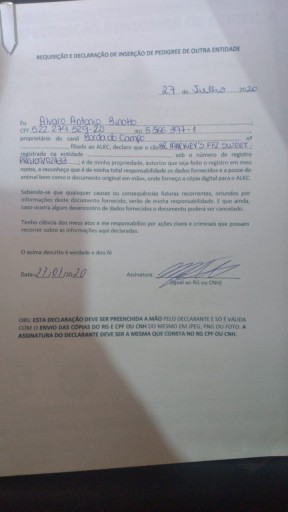 REQUISIÇÃO E DECLARAÇÃO DE INSERÇÃO DE PEDIGREE DE OUTRA ENTIDADE
27 de Julho 2020
Eu Alvaro Antonio Binotto
CPF 522.279.529-20 RG
proprietário do canil Borda do Campo nº
filiado ao ALKC, declaro que o cão
registrado na entidade sob o número de registro
é de minha propriedade, autorizo que seja feito o registro em meu
nome, e reconheço que é de minha total responsabilidade os dados fornecidos e a posse do
animal bem como o documento original em mãos, onde forneço a cópia digital para o ALKC.
Sabendo-se que quaisquer causas ou consequências futuras recorrentes, oriundos por
informações deste documento fornecido, serão de minha responsabilidade. E que ainda,
caso ocorra algum desencontro de dados fornecidos o documento poderá ser cancelado.
Tenho ciência dos meus atos e me responsabilizo por ações cíveis e criminais que possam
recorrer sobre as informações aqui declaradas.
O acima descrito é verdade e dou fé
Data: Assinatura:
(Igual ao RG ou CNH)
OBS: ESTA DECLARAÇÃO DEVE SER PREENCHIDA A MÃO PELO DECLARANTE E SÓ É VÁLIDA
COM O ENVIO DAS CÓPIAS DO RG E CPF OU CNH DO MESMO EM JPEG, PNG OU FOTO. A
ASSINATURA DO DECLARANTE DEVE SER A MESMA QUE CONSTA NO RG CPF OU CNH.